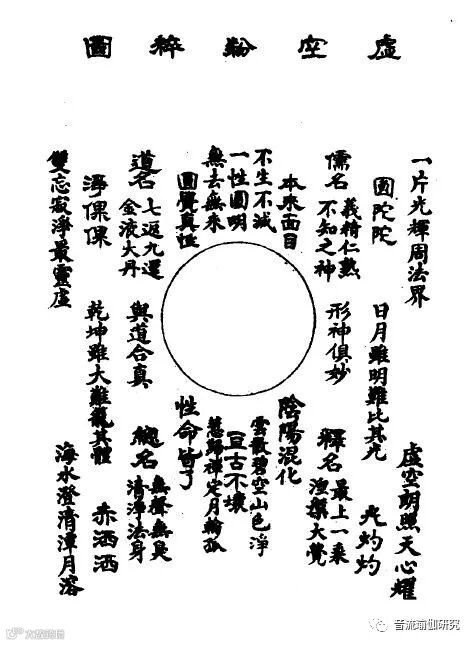 虛空粉粹圖
一片光輝周法界
虛空朗照天心耀
圓陀陀
日月雖明難比其光
光灼灼
儒名
義精仁熟
不知之神
形神俱妙
釋名
最上一乘
涅槃大覺
本來面目
陰陽混化
不生不滅
一性圓明
無去無來
雲散碧空山色淨
亘古不壞
慧歸禪定月輪孤
圓覺真性
性命皆了
道名
七返九還
金液大丹
與道合真
總名
無聲無臭
清淨法身
淨倮倮
乾坤雖大難籠其體
赤洒洒
雙忘寂淨最靈虛
海水澄清潭月溶
音流瑜伽研究
大数跨境